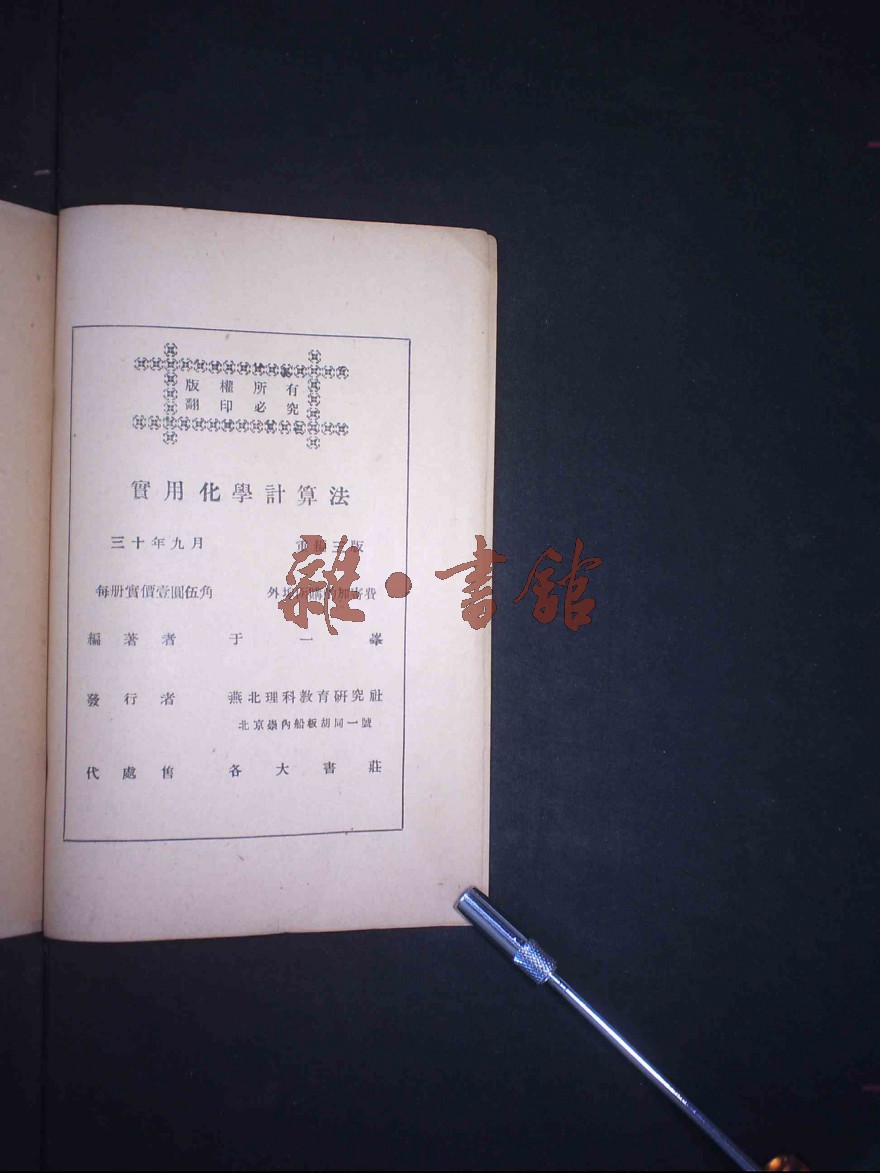 版權所有
翻印必究
實用化學計算法
三十年九月 三版
每册實價壹圓伍角 外埠 加寄費
編著者 于一峯
發行者 燕北理科教育研究社
北京崇內船板胡同一號
代處售 各大書莊
雜·書館